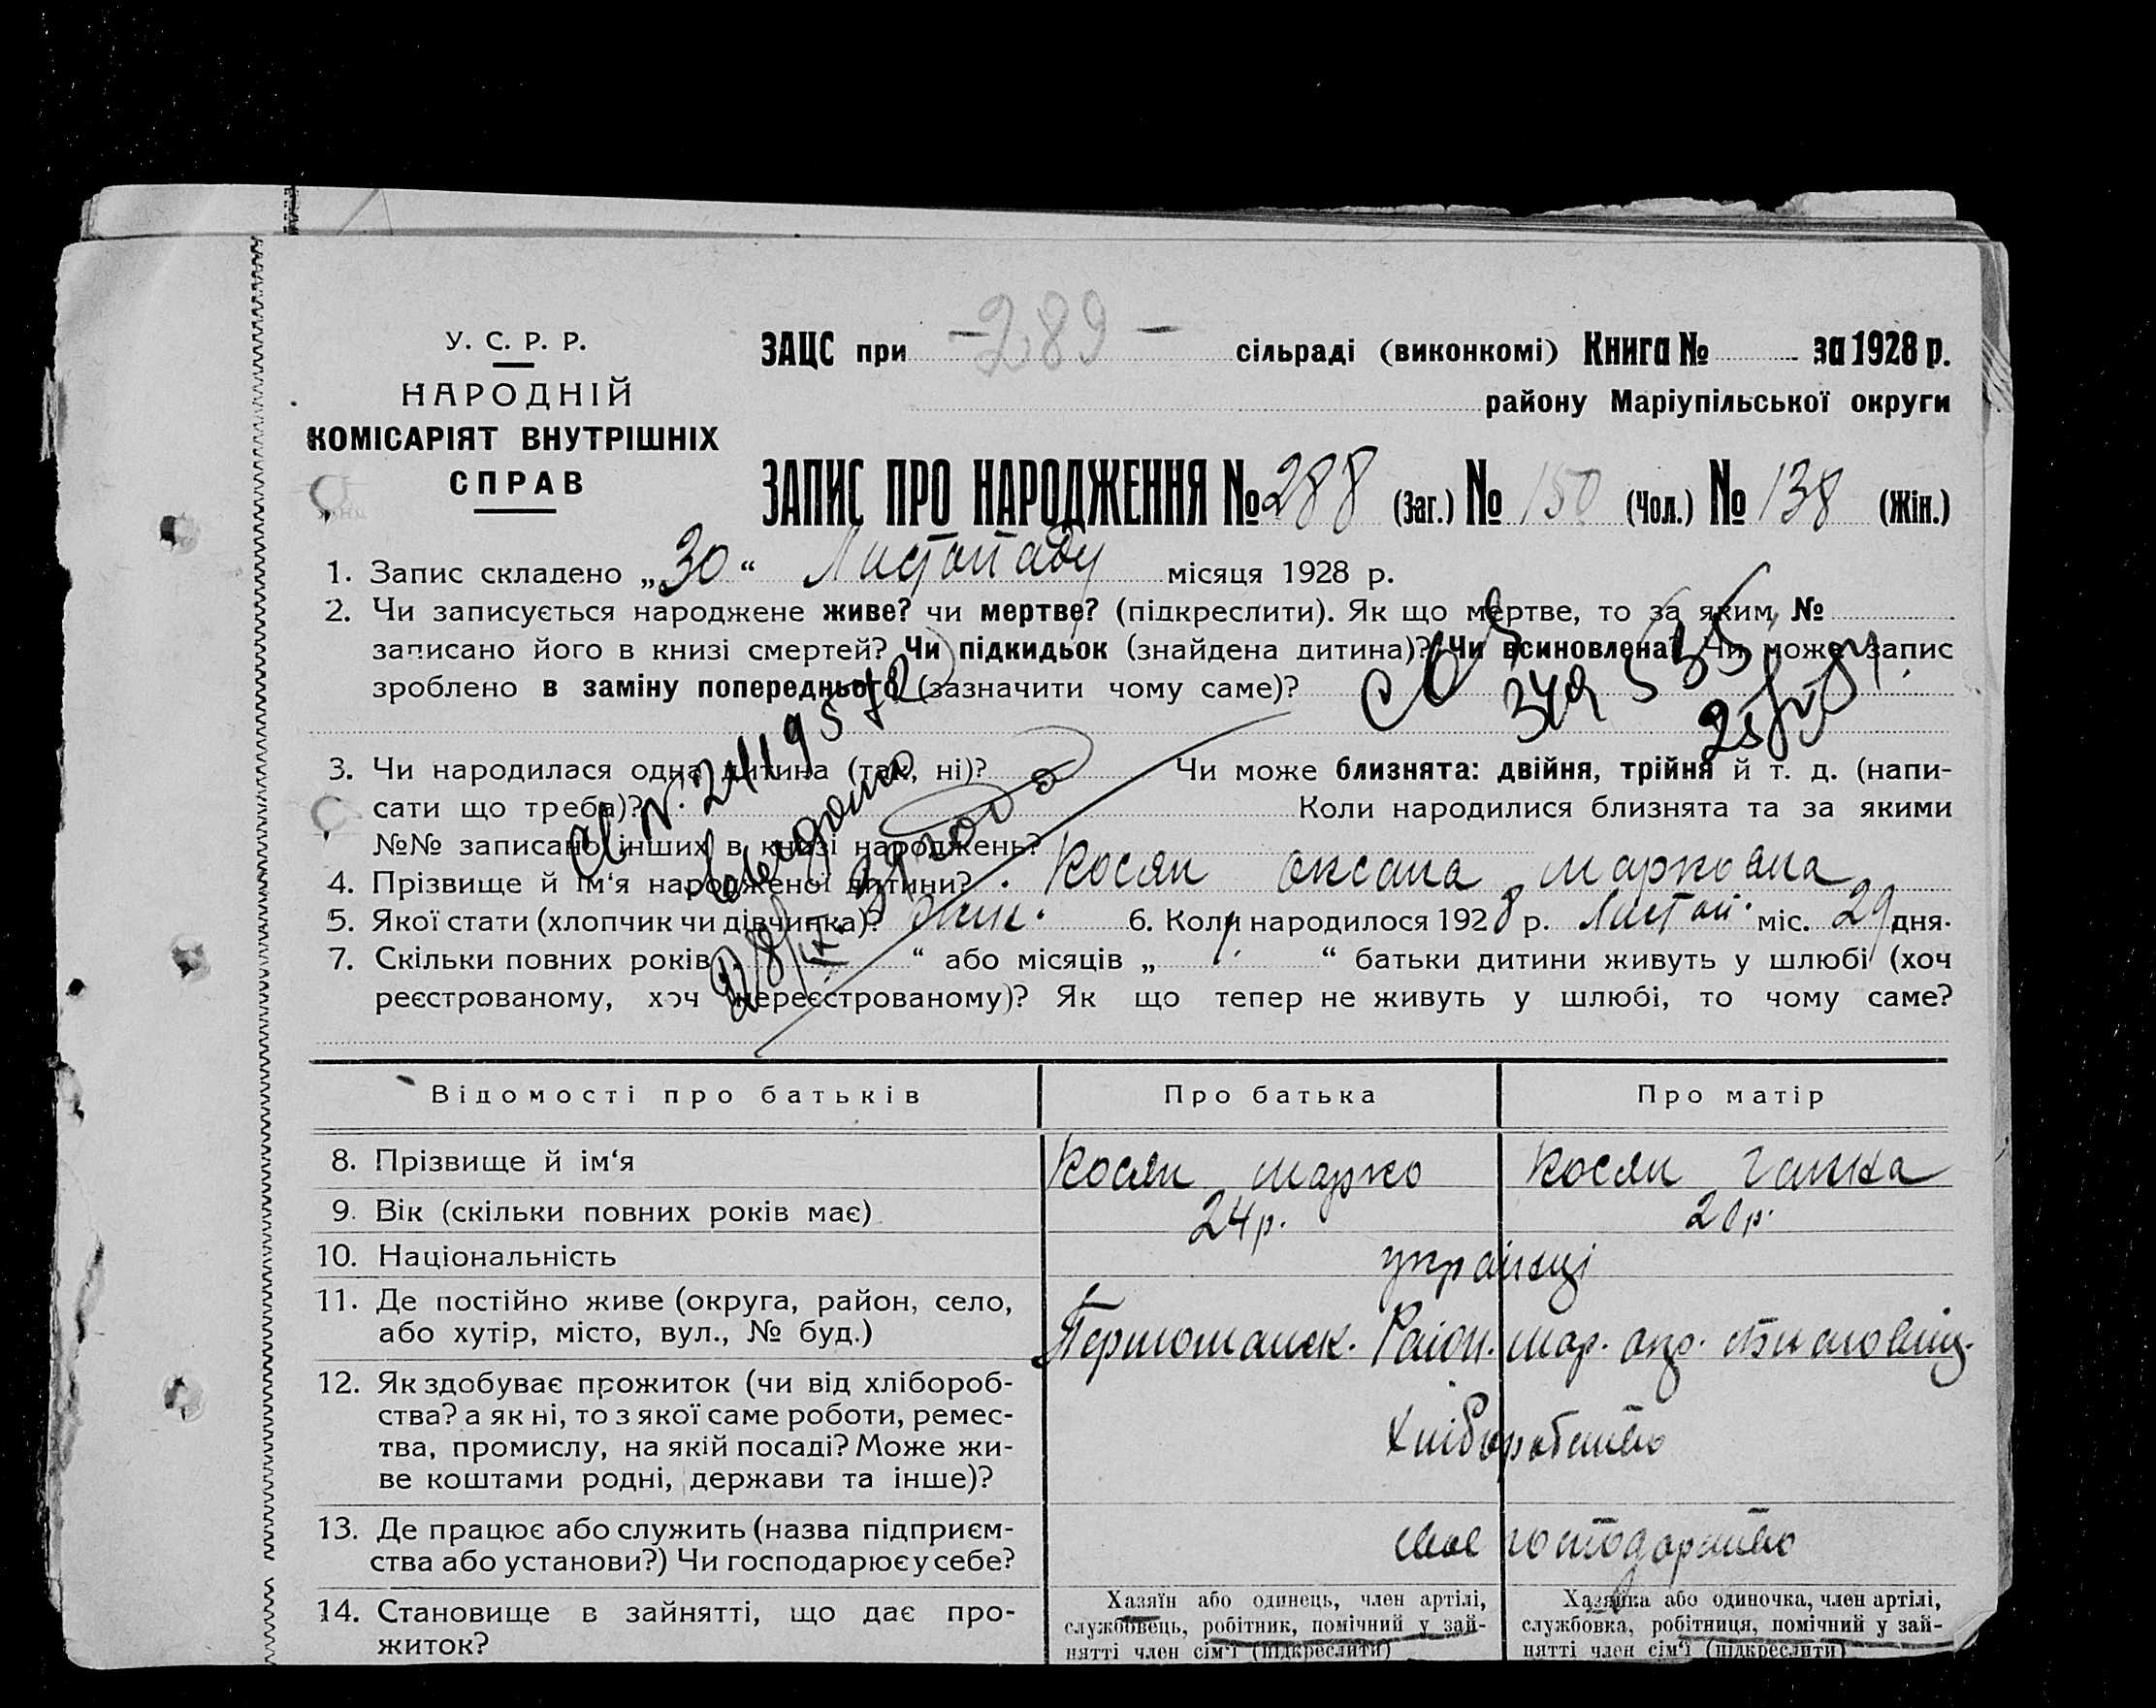 У. С. Р. Р.
НАРОДНІЙ
КОМІСАРІЯТ ВНУТРІШНІХ
СПРАВ
ЗАЦС при -289- сільраді (виконкомі) Книга № за 1928 р.
району Маріупільської округи
ЗАПИС ПРО НАРОДЖЕННЯ № 288 (Заг.) № 150 (Чол.) № 138 (Жін.)
1. Запис складено „30“ Листопаду місяця 1928 р.
2. Чи записується народжене живе? чи мертве? (підкреслити). Як що мертве, то за яким №
записано його в книзі смертей? Чи підкидьок (знайдена дитина)? Чи всиновлена? Чи може запис
зроблено в заміну попереднього (зазначити чому саме)?
3. Чи народилася одна дитина (так, ні)? Чи може близнята: двійня, трійня й т. д. (напи-
сати що треба)? Коли народилися близнята та за якими
№№ записано інших в книзі народжень?
4. Прізвище й ім‘я народженої дитини? Косян Оксана Марковна
5. Якої стати (хлопчик чи дівчинка)? жін. 6. Коли народилося 1928 р. Листоп. міс. 29 дня.
7. Скільки повних років „ “ або місяців „ “ батьки дитини живуть у шлюбі (хоч
реєстрованому, хоч нереєстрованому)? Як що тепер не живуть у шлюбі, то чому саме?
Відомості про батьків Про батька Про матір
8. Прізвище й ім‘я Косян Марко Косян Ганна
9. Вік (скільки повних років має) 24 р. 20 р.
10. Національність українці
11. Де постійно живе (округа, район, село,
або хутір, місто, вул., № буд.) Район. Мар. окр.
12. Як здобуває прожиток (чи від хлібороб-
ства? а як ні, то з якої саме роботи, ремес-
тва, промислу, на якій посаді? Може жи-
ве коштами родні, держави та інше)? Хліборобство
13. Де працює або служить (назва підприєм-
ства або установи?) Чи господарює у себе? своє господарство
14. Становище в зайнятті, що дає про-
житок?
Хазяїн або одинець, член артілі,
службовець, робітник, помічний у зай-
нятті член сім‘ї (підкреслити)
Хазяйка або одиночка, член артілі,
службовка, робітниця, помічний у зай-
нятті член сім‘ї (підкреслити)